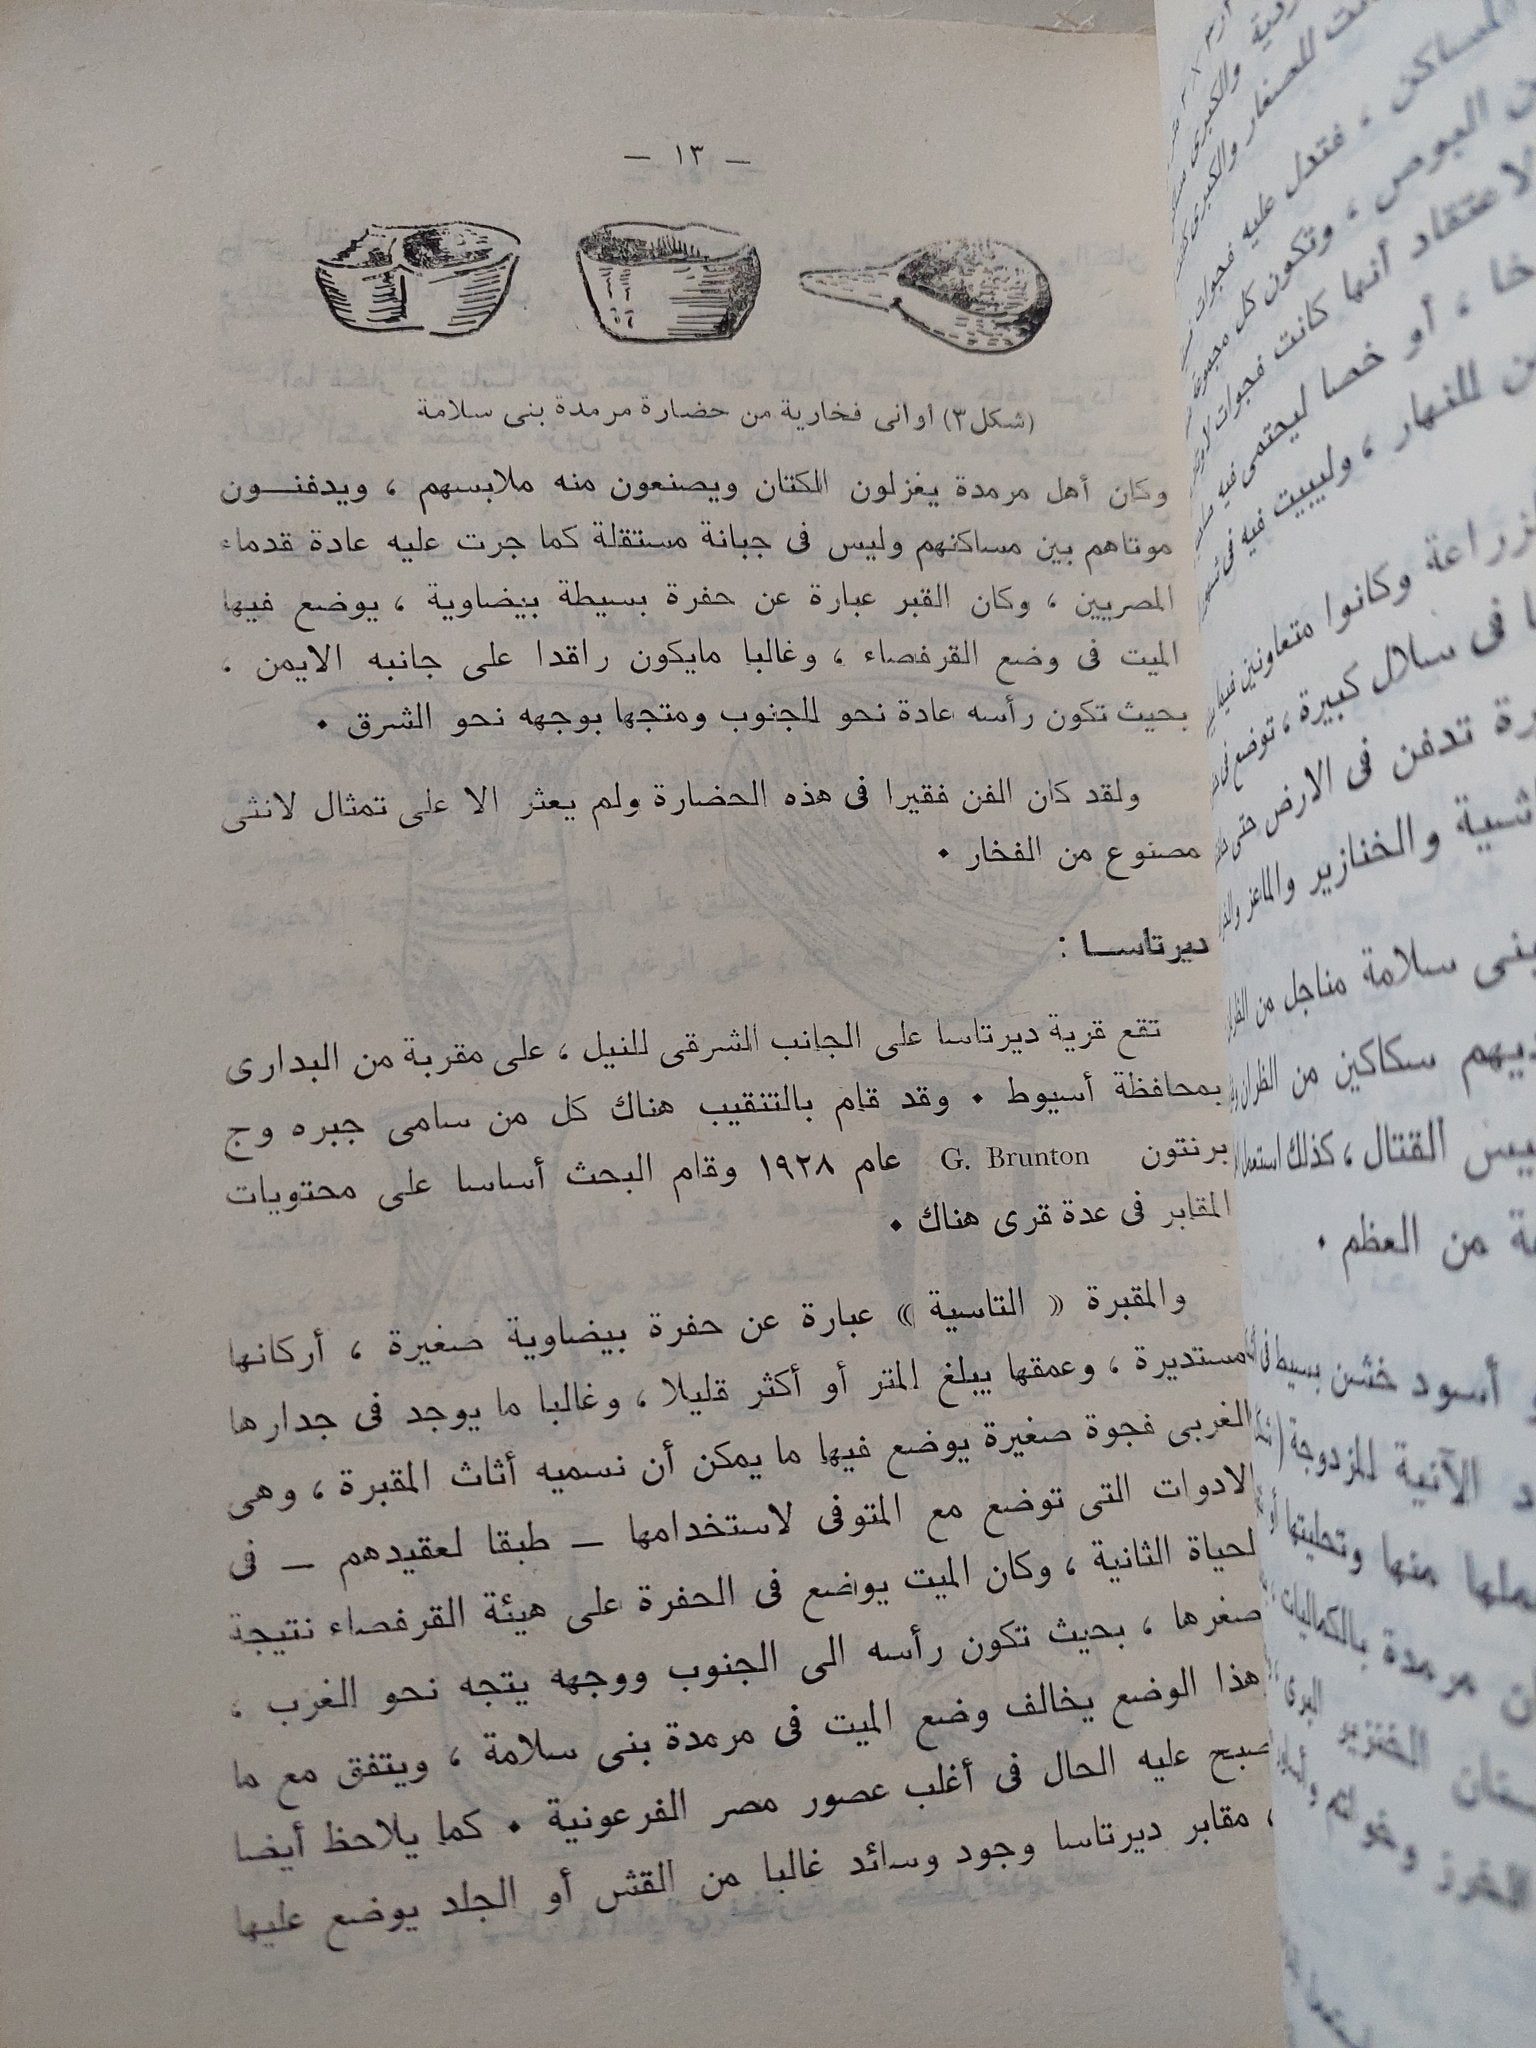 — ١٣ —
(شكل٣) أوانى فخارية من حضارة مرمدة بنى سلامة
وكان أهل مرمدة يغزلون الكتان ويصنعون منه ملابسهم ، ويدفنــون
موتاهم بين مساكنهم وليس فى جبانة مستقلة كما جرت عليه عادة قدماء
المصريين ، وكان القبر عبارة عن حفرة بسيطة بيضاوية ، يوضع فيها
الميت فى وضع القرفصاء ، وغالبا مايكون راقدا على جانبه الايمن ،
بحيث تكون رأسه عادة نحو الجنوب ومتجها بوجهه نحو الشرق •
ولقد كان الفن فقيرا فى هذه الحضارة ولم يعثر الا على تمثال لانثى
مصنوع من الفخار •
ديرتاســا :
تقع قرية ديرتاسا على الجانب الشرقى للنيل ، على مقربة من البدارى
بمحافظة أسيوط • وقد قام بالتنقيب هناك كل من سامى جبره وج
برنتون G. Brunton عام ١٩٢٨ وقام البحث أساسا على محتويات
المقابر فى عدة قرى هناك •
والمقبرة « التاسية » عبارة عن حفرة بيضاوية صغيرة ، أركانها
مستديرة ، وعمقها يبلغ المتر أو أكثر قليلا ، وغالبا ما يوجد فى جدارها
الغربى فجوة صغيرة يوضع فيها ما يمكن أن نسميه أثاث المقبرة ، وهى
الادوات التى توضع مع المتوفى لاستخدامها — طبقا لعقيدهم — فى
لحياة الثانية ، وكان الميت يوضع فى الحفرة على هيئة القرفصاء نتيجة
صغرها ، بحيث تكون رأسه الى الجنوب ووجهه يتجه نحو الغرب ،
هذا الوضع يخالف وضع الميت فى مرمدة بنى سلامة ، ويتفق مع ما
صبح عليه الحال فى أغلب عصور مصر الفرعونية • كما يلاحظ أيضا
مقابر ديرتاسا وجود وسائد غالبا من القش أو الجلد يوضع عليها
للصغار والكبرى
المساكن ، فتدل عليه فجوات
البوص ، وتكون كل مجموعة
لاعتقاد أنها كانت فجوات
، أو خصا ليحتمى فيه
للنهار ، وليبيت فيه فى
زراعة وكانوا متعاونين فيما
فى سلال كبيرة ، توضع فى
تدفن فى الارض حتى
والخنازير والماعز
بنى سلامة مناجل من
سكاكين من الظران
القتال ، كذلك
من العظم •
أسود خشن بسيط
الآنية المزدوجة
منها وتحليتها أو
مرمدة بالكماليات